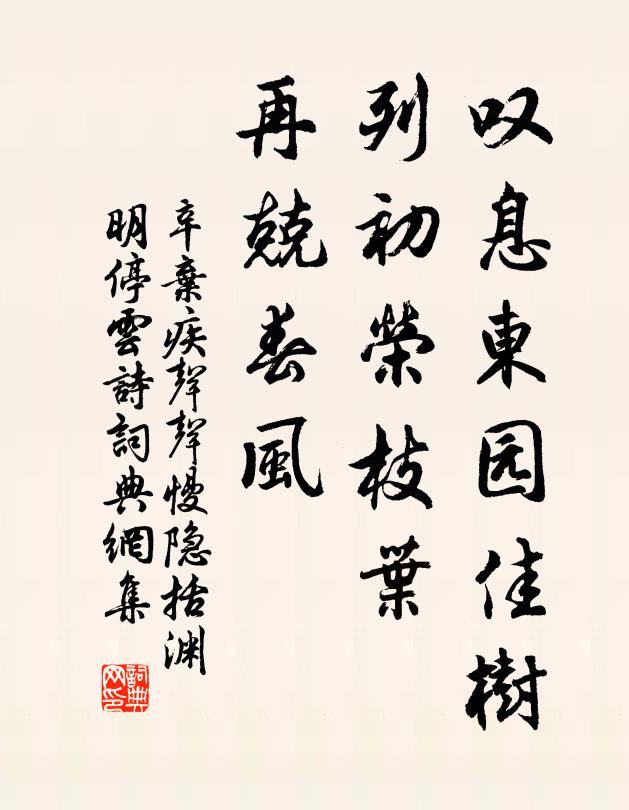 叹息東园佳樹
列初榮枝葉
再兢春風
辛棄疾聲聲慢隐括渊
明停雲詩詞典網集
詞典网印